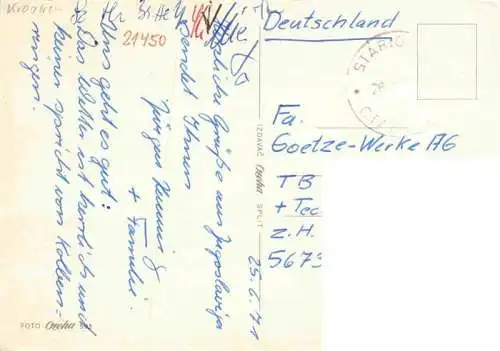 Kroatien
21450
Herzliche Grüße aus Jugoslawien
sendet Ihnen
Jürgen
+ Familie
Uns geht es gut!
Das Wetter ist herrlich und
keiner spricht von Kolben-
ringen.
FOTO
IZDAVAČ
SPLIT
25.6.71
Deutschland
STARIG
Fa.
Goetze-Werke AG
TB
+ Tec
z. H.
5673